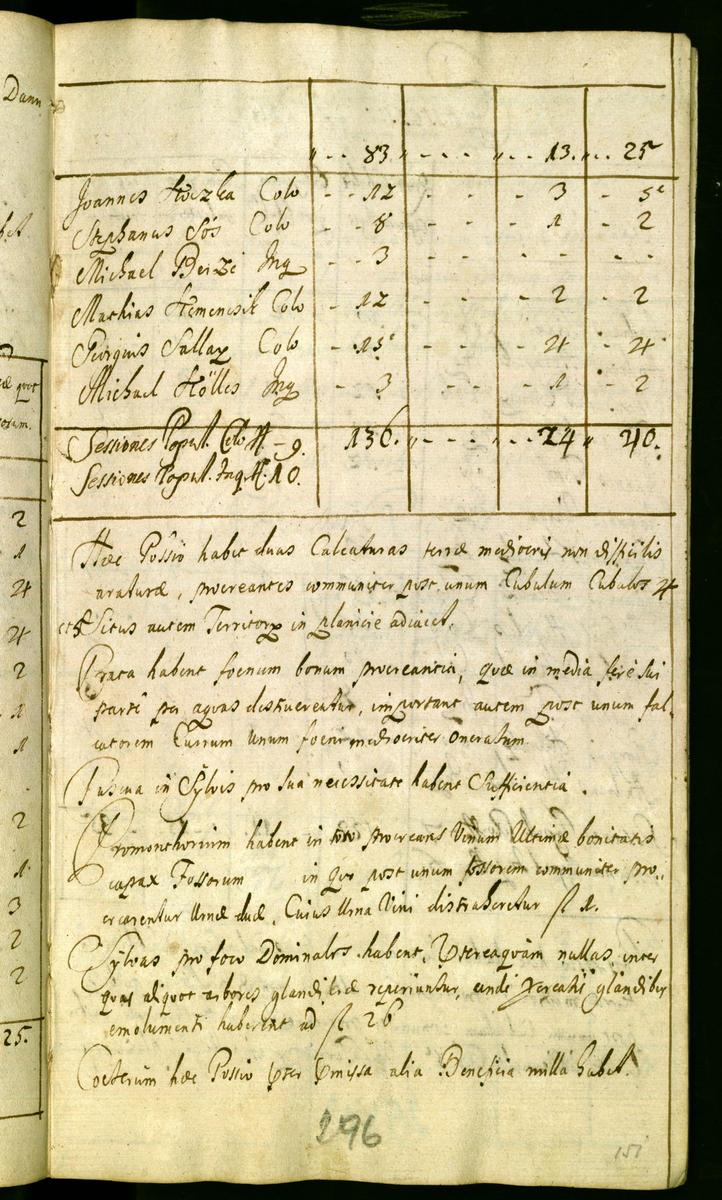 Dann
" - - 83 " - - - " - - 13. " - - 25
Joannes Koczka Colo - - 12 - - - 3 - 5
Stephanus Sós Colo - - 8 - - - 1 - 2
Michael Beize Inq - - 3 - - - - - -
Mathias Kemencsik Colo - 12 - - - 2 - 2
Georgius Sallay Colo - 15 - - - 4 - 4
Michael Hölles Inq - 3 - - - 1 - 2
Sessiones Popul. Colo # - 9. 136. " - - - " - - - 24 " 40.
Sessiones Popul. Inq. #. 10.
Hæc Possio habet duas Calcaturas terræ mediocris non difficilis
araturæ, procreantes communiter post unum Cubulum Cubulos 4
et 5 Situs autem Territory in planicie adiacet.
Prata habent foenum bonum procreantia, quæ in media fere sui
parte per aquas destruerentur, important autem post unum fal-
catorem Currum unum foeni mediocriter oneratum
Pascua in Sylvis pro sua necessitate habent Sufficientia.
Promonthorium habent in toto procreans Vinum Ultimæ bonitatis
capax Fossorum in quo post unum fossorem communiter pro-
crearentur Urnæ duæ, Cuius Urna Vini distraheretur fl 1.
Sylvas pro foco Dominales habent, Ptereaquam nullas, inter
quas aliquot arbores glandiferæ reperiuntur, unde glandiber
emolumenti haberent ad fl 26
Coeterum hæc Possio Pter Pmissa alia Beneficia nulla habet.
296
151
quot
2
1
4
4
2
1
1
2
1
3
2
2
25.